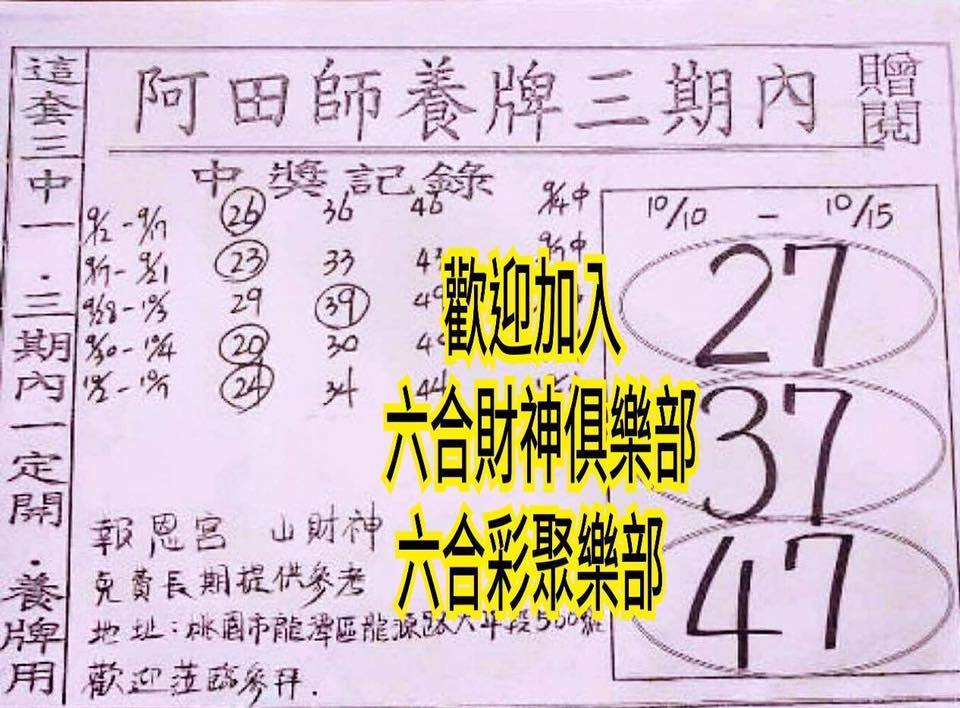 阿田師養牌三期內
贈閱
這套三中一．三期內一定開．養牌用
中獎記錄
9/2 - 9/7 26 36 46 9/4中
9/17 - 9/21 23 33 43
9/28 - 10/3 29 39
9/30 - 10/4 20 30
10/5 - 10/7 24 34 44
10/10 - 10/15
27
37
47
歡迎加入
六合財神俱樂部
六合彩聚樂部
報恩宮 山財神
免費長期提供參考
地址：桃園市龍潭區龍源路大平段500
歡迎蒞臨參拜．